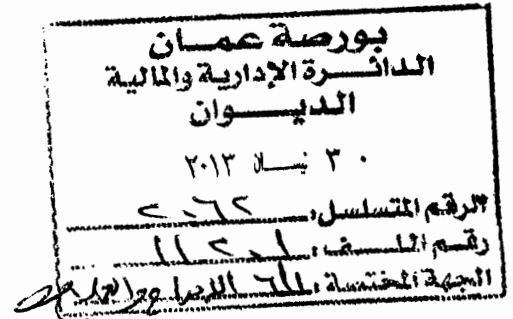 بورصة عمــان
الدائــــرة الإدارية والمالية
الديـــــوان
٣٠ نيسان ٢٠١٣
الرقم المتسلسل: ٢٠٦٢
رقم الملــــف: ١١٢٠١
الجهة المختصة: